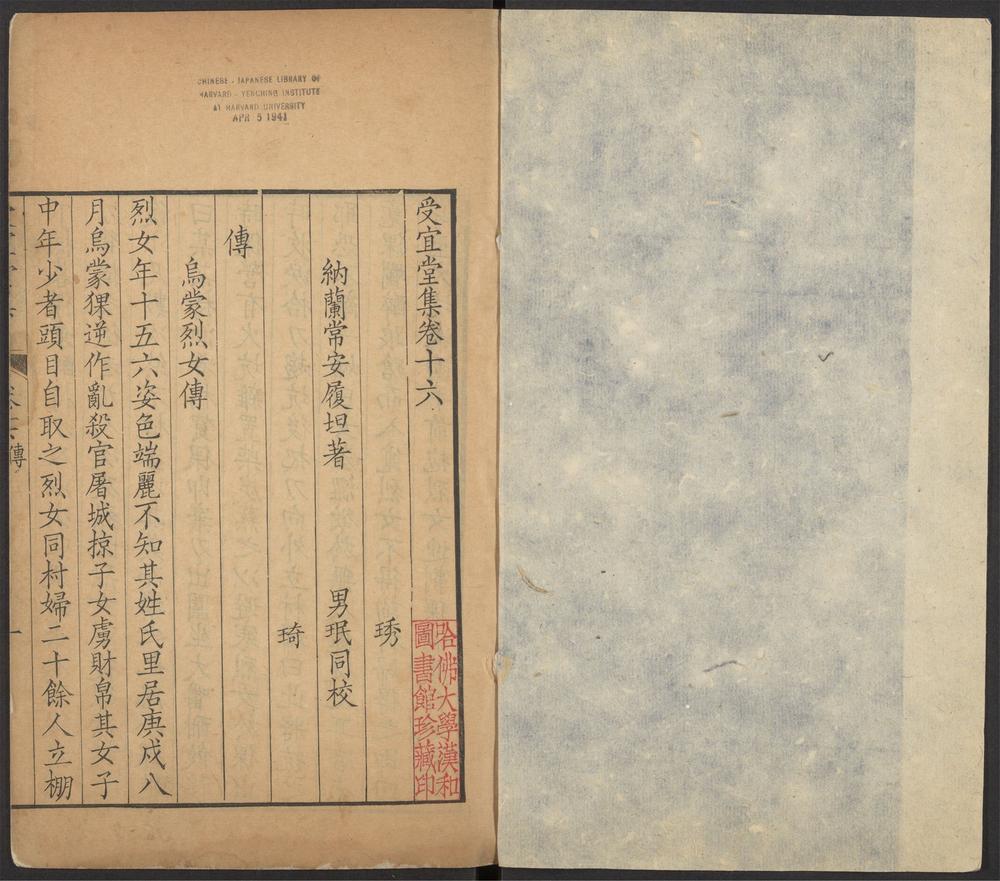 CHINESE - JAPANESE LIBRARY OF
HARVARD - YENCHING INSTITUTE
AT HARVARD UNIVERSITY
APR 5 1941
受宜堂集卷十六
哈佛大學漢和
圖書館珍藏印
琇
納蘭常安履坦著 男珉同校
琦
傳
烏蒙烈女傳
烈女年十五六姿色端麗不知其姓氏里居庚戌八
月烏蒙猓逆作亂殺官屠城掠子女虜財帛其女子
中年少者頭目自取之烈女同村婦二十餘人立棚
傳
一